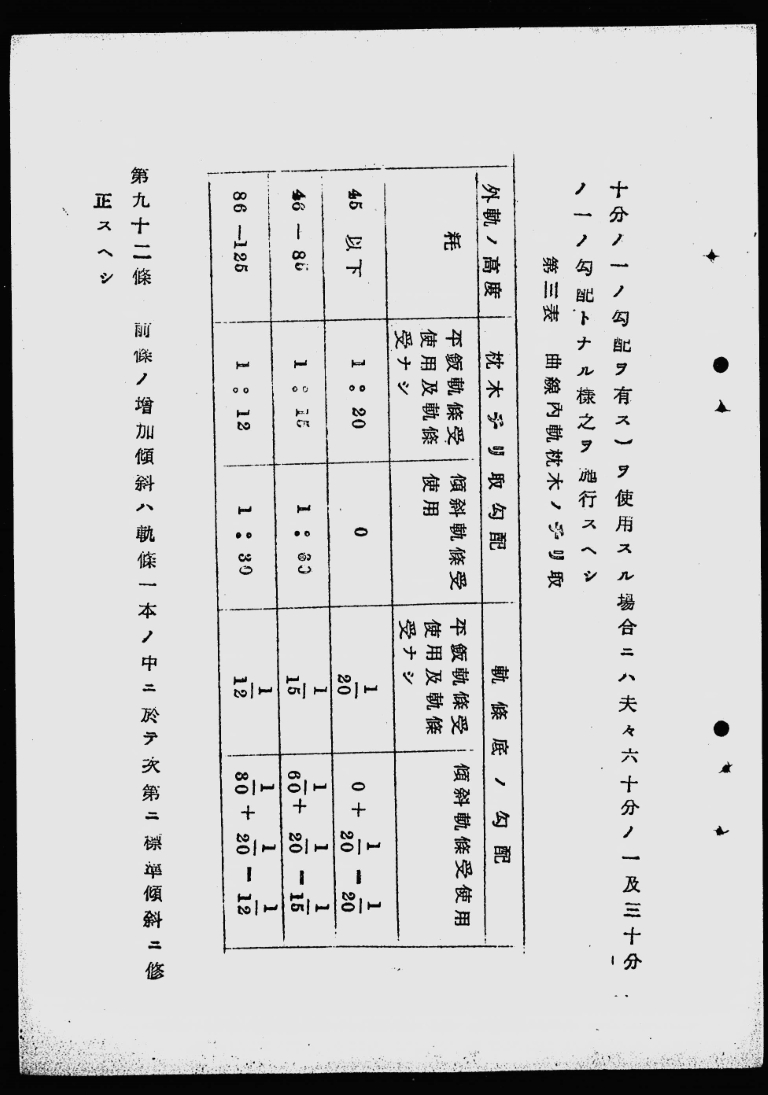 十分ノ一ノ勾配ヲ有ス)ヲ使用スル場合ニハ夫々六十分ノ一及三十分
ノ一ノ勾配トナル様之ヲ施行スヘシ
第三表 曲線內軌枕木ノ子リ取
外軌ノ高度 枕木子リ取勾配 軌條底ノ勾配
粍 平鈑軌條受使用及軌條受ナシ 傾斜軌條受使用 平鈑軌條受使用及軌條受ナシ 傾斜軌條受使用
45 以下 1:20 0 1/20 0+1/20=1/20
46—85 1:15 1:60 1/15 1/60+1/20=1/15
86—125 1:12 1:30 1/12 1/30+1/20=1/12
第九十二條 前條ノ增加傾斜ハ軌條一本ノ中ニ於テ次第ニ標準傾斜ニ修
正スヘシ